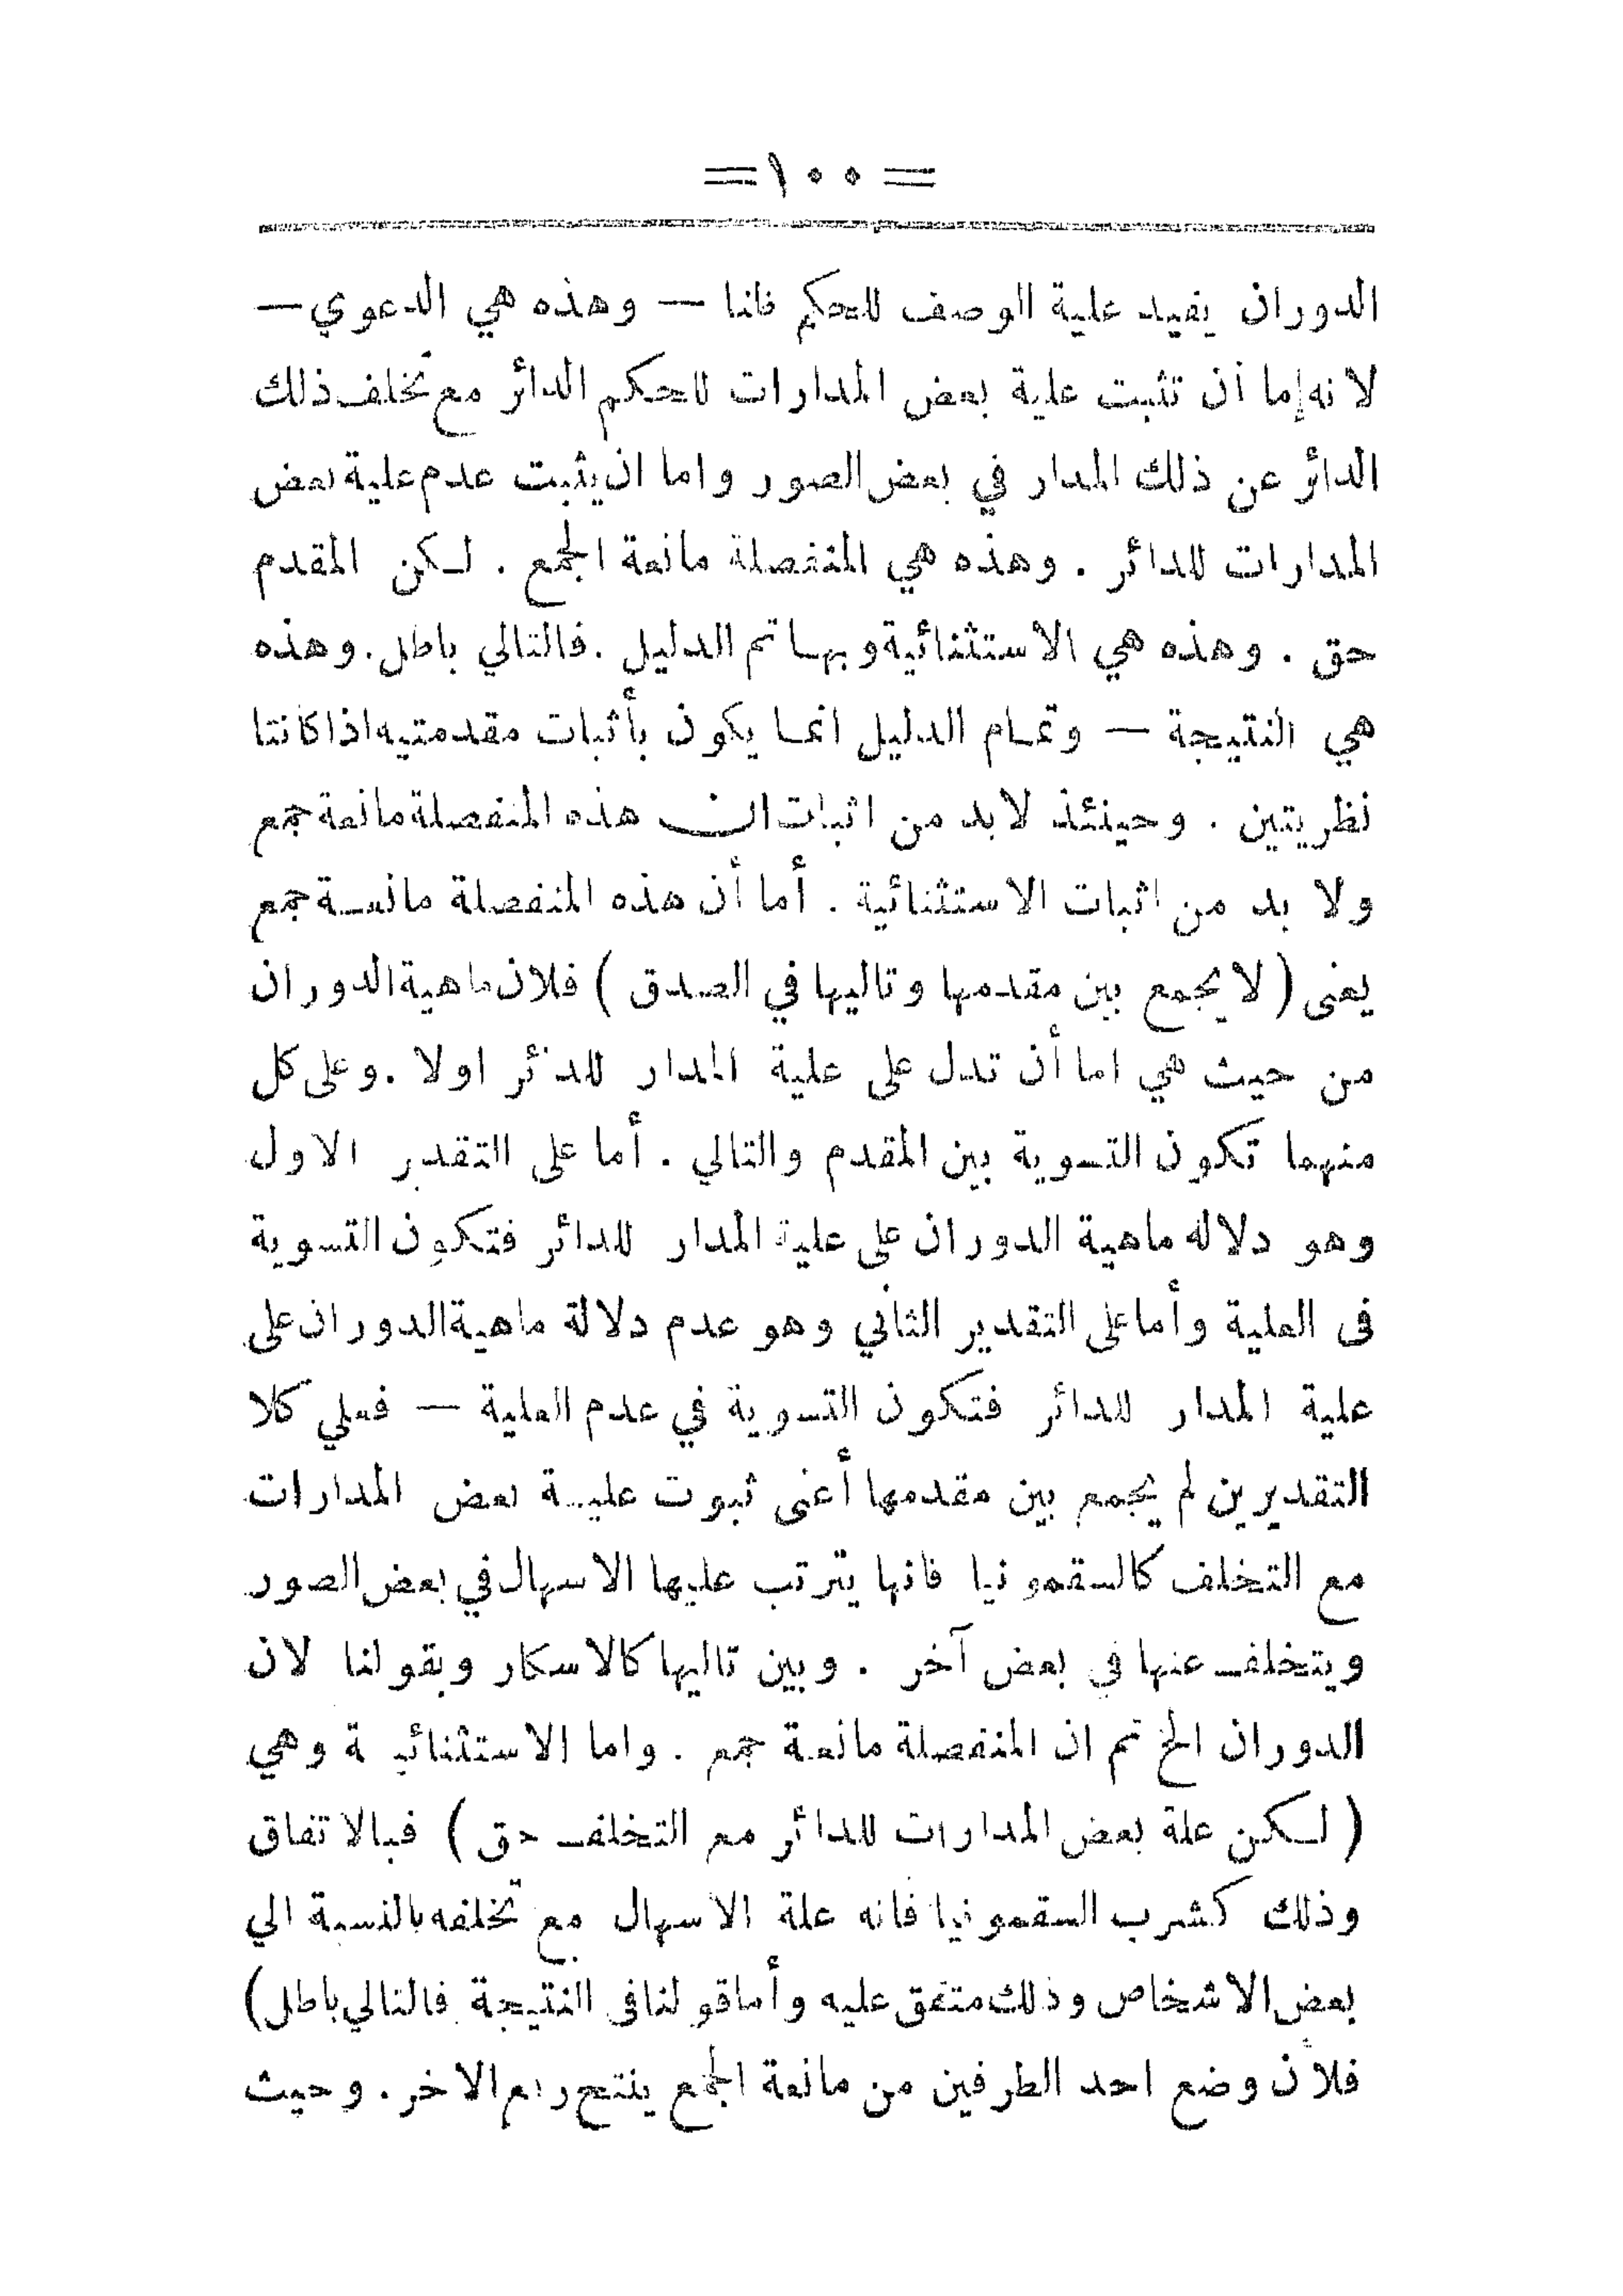 =١٠٠=
الدوران يفيد علية الوصف للحكم فانا — وهذه هي الدعوي —
لانه إما أن تثبت علية بعض المدارات للحكم الدائر مع تخلف ذلك
الدائر عن ذلك المدار في بعض الصور واما ان يثبت عدم علية بعض
المدارات للدائر . وهذه هي المنفصلة مانعة الجمع . لكن المقدم
حق . وهذه هي الاستثنائية وبها تم الدليل . فالتالي باطل . وهذه
هي النتيجة — وتمام الدليل انما يكون بأثبات مقدمتيه اذا كانتا
نظريتين . وحينئذ لابد من اثبات ان هذه المنفصلة مانعة جمع
ولا بد من اثبات الاستثنائية . أما أن هذه المنفصلة مانعة جمع
يعنى ( لا يجمع بين مقدمها وتاليها في الصدق ) فلان ماهية الدوران
من حيث هي اما أن تدل على علية المدار للدائر اولا . وعلى كل
منهما تكون التسوية بين المقدم والتالي . أما على التقدير الاول
وهو دلاله ماهية الدوران على علية المدار للدائر فتكون التسوية
فى العلية وأما على التقدير الثاني وهو عدم دلالة ماهية الدوران على
علية المدار للدائر فتكون التسوية في عدم العلية — فعلي كلا
التقديرين لم يجمع بين مقدمها أعنى ثبوت علية بعض المدارات
مع التخلف كالسقمونيا فانها يترتب عليها الاسهال في بعض الصور
ويتخلف عنها في بعض آخر . وبين تاليها كالاسكار وبقولنا لان
الدوران الخ تم ان المنفصلة مانعة جمع . واما الاستثنائية وهي
( لكن علة بعض المدارات للدائر مع التخلف حق ) فبالاتفاق
وذلك كشرب السقمونيا فانه علة الاسهال مع تخلفه بالنسبة الي
بعض الاشخاص وذلك متفق عليه وأما قولنا فى النتيجة فالتالي باطل )
فلأن وضع احد الطرفين من مانعة الجمع ينتج رفع الاخر . وحيث